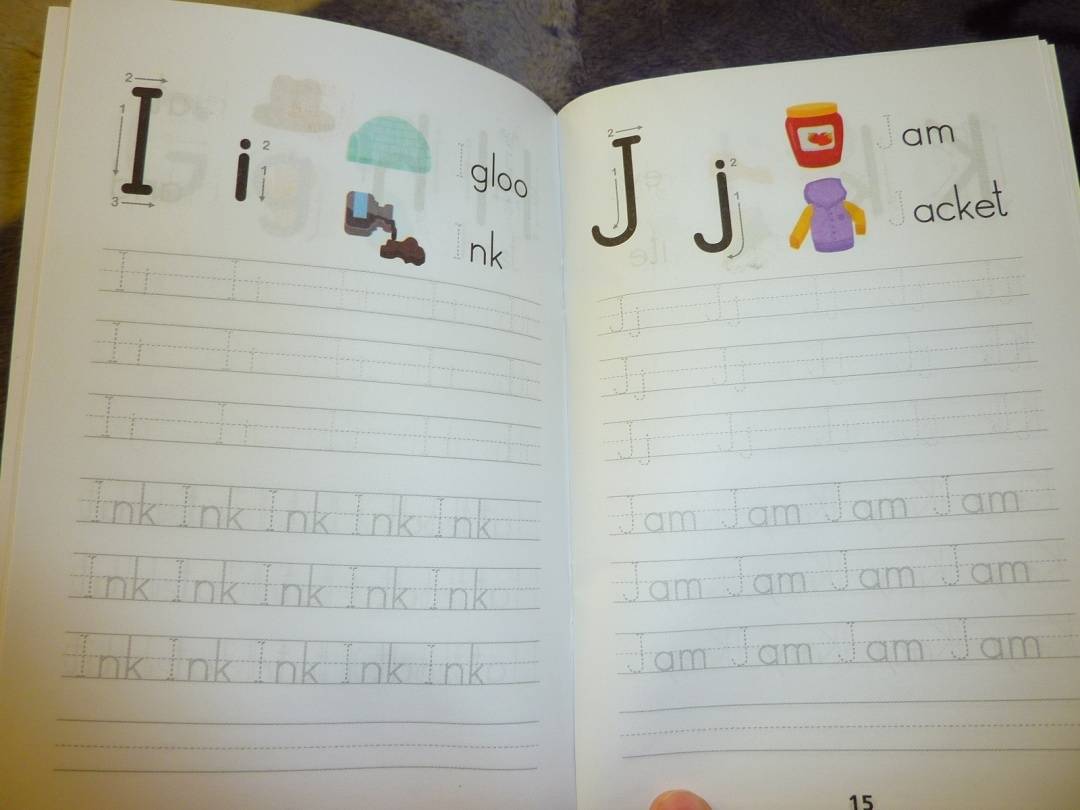 2
1 I i 2
1
3
Igloo
Ink
I i I i I i I i I i
I i I i I i I i I i
I i I i I i I i I i
Ink Ink Ink Ink Ink
Ink Ink Ink Ink Ink
Ink Ink Ink Ink Ink
2
1 J j 2
1
Jam
Jacket
J j J j J j J j J j
J j J j J j J j J j
J j J j J j J j J j
Jam Jam Jam Jam
Jam Jam Jam Jam
Jam Jam Jam Jam
15